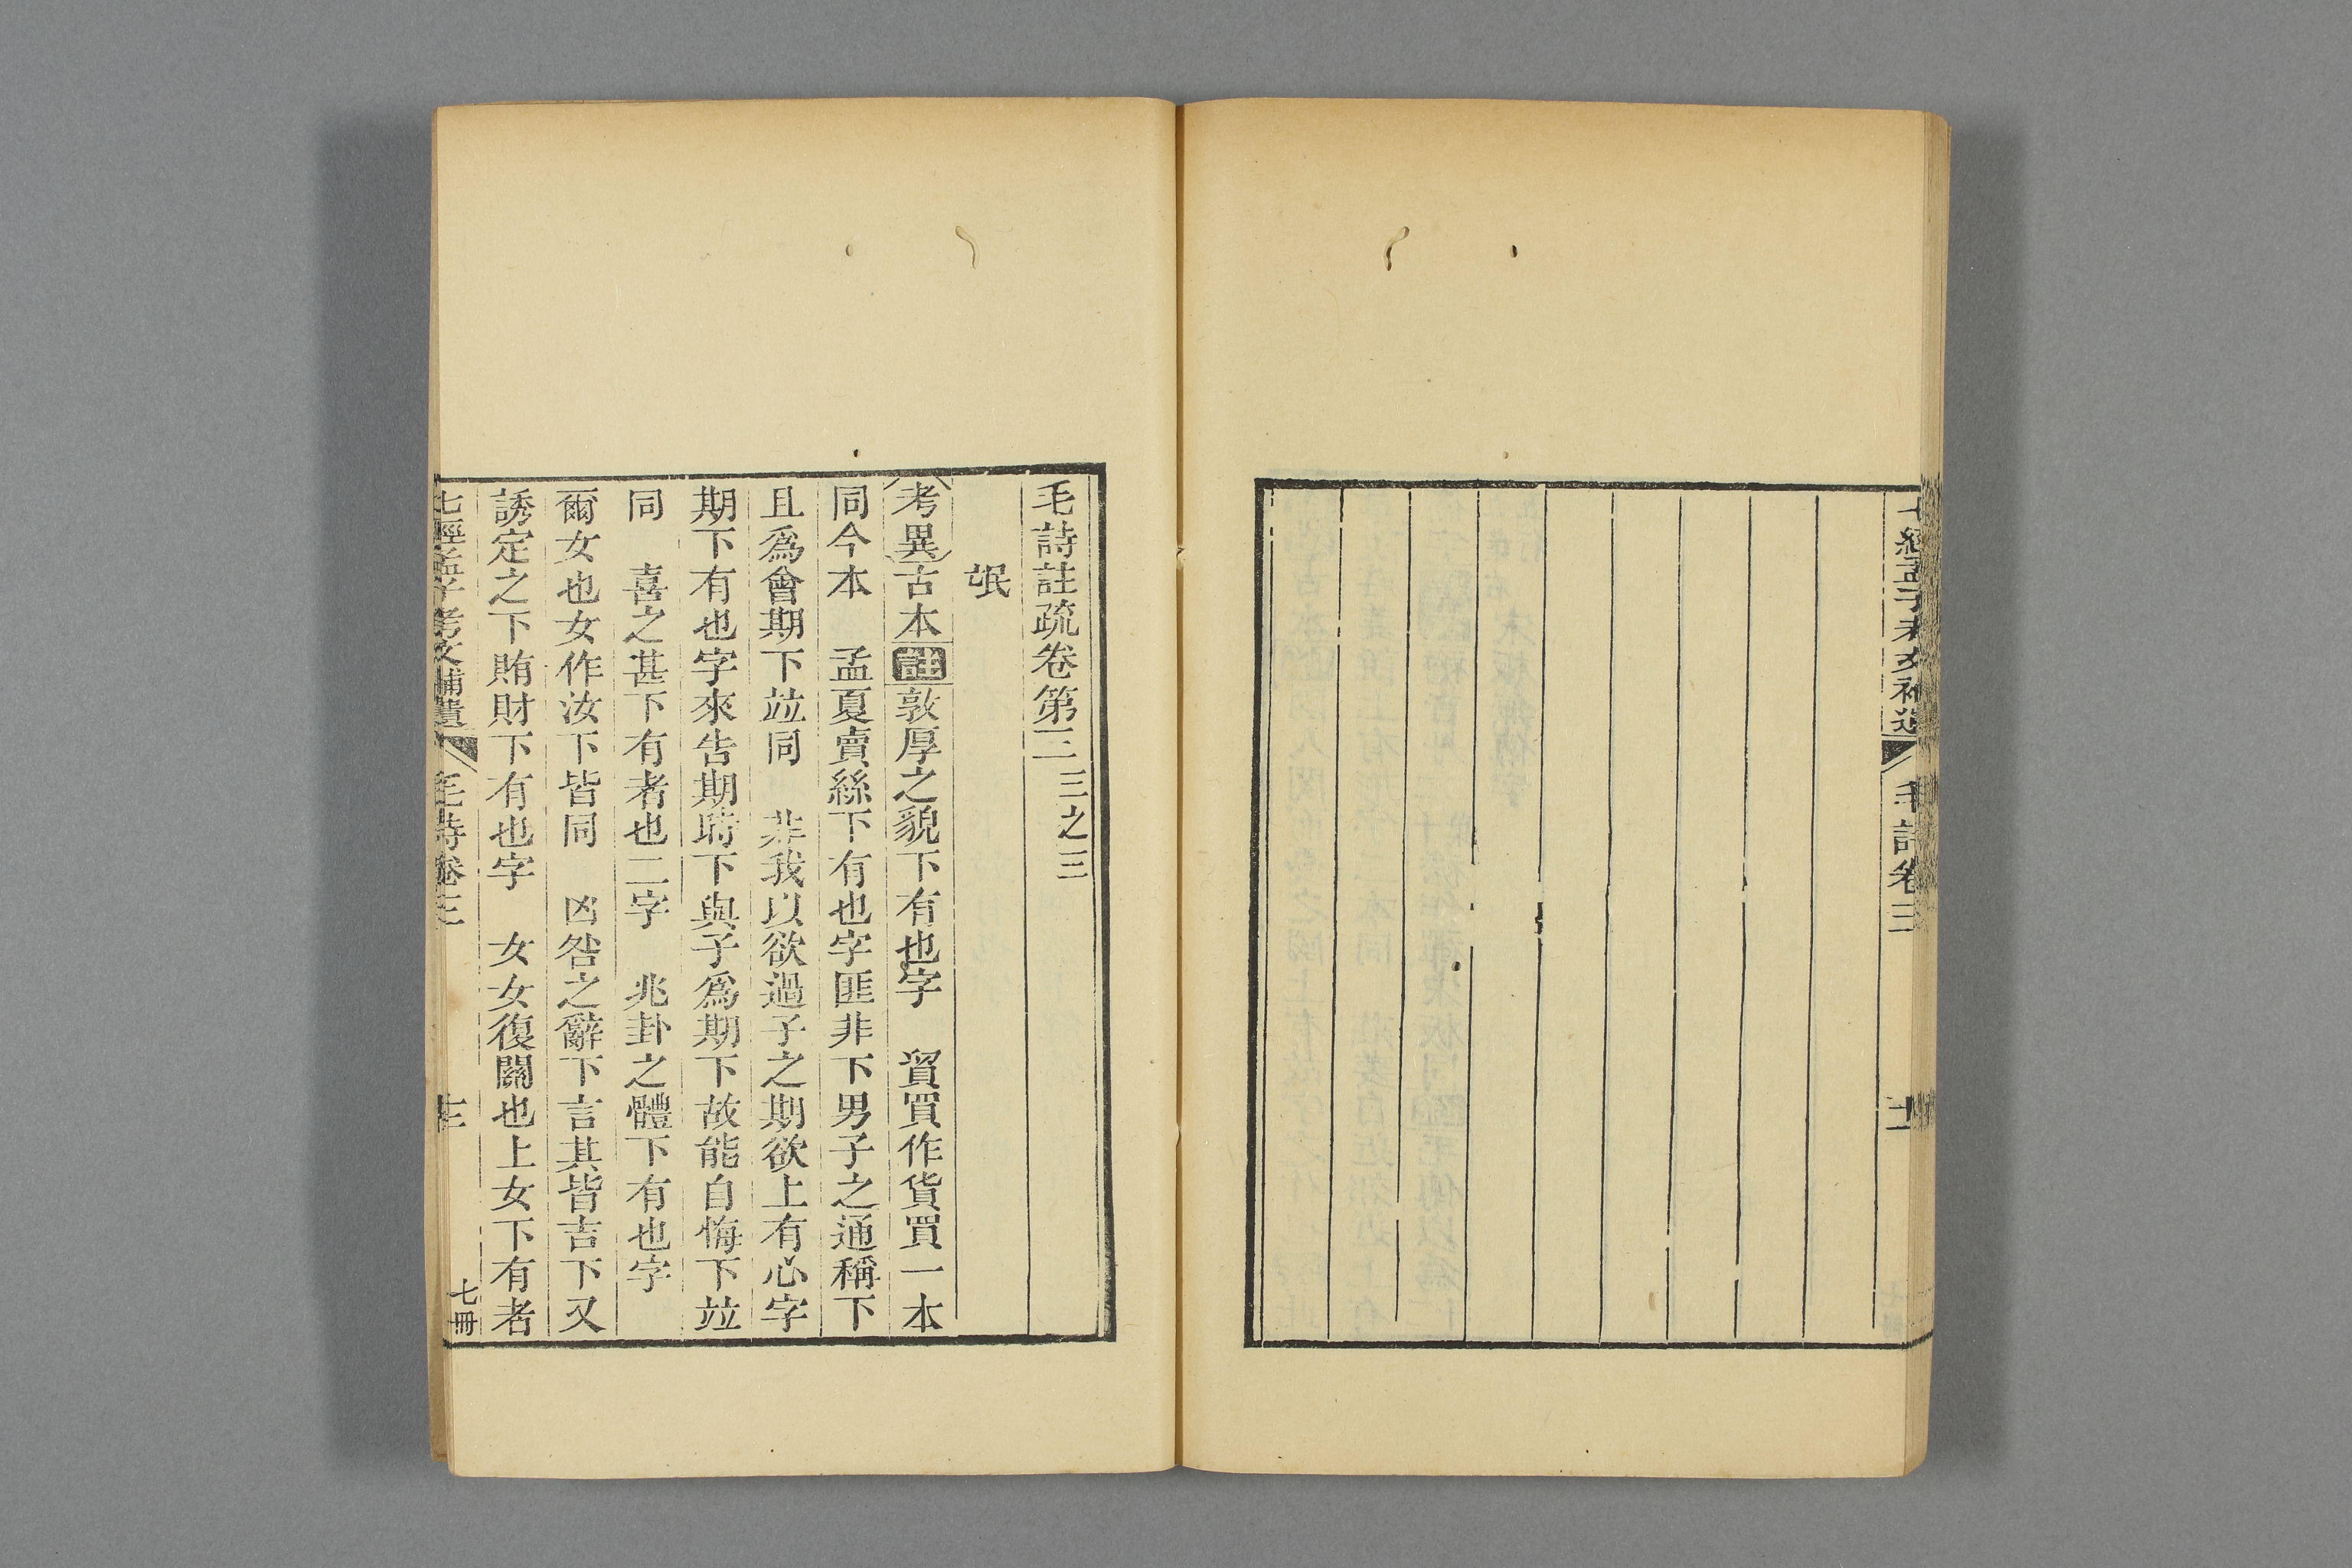 七經孟子考文補遺 毛詩卷三 十二
毛詩註疏卷第三 三之三
氓
考異古本註敦厚之貌下有也字 貿買作貨買一本
同今本 孟夏賣絲下有也字匪非下男子之通稱下
且爲會期下竝同 非我以欲過子之期欲上有心字
期下有也字來告期時下與子爲期下故能自悔下竝
同 喜之甚下有者也二字 兆卦之體下有也字
爾女也女作汝下皆同 凶咎之辭下言其皆吉下又
誘定之下賄財下有也字 女女復關也上女下有者
七經孟子考文補遺 毛詩卷三 十三 七冊